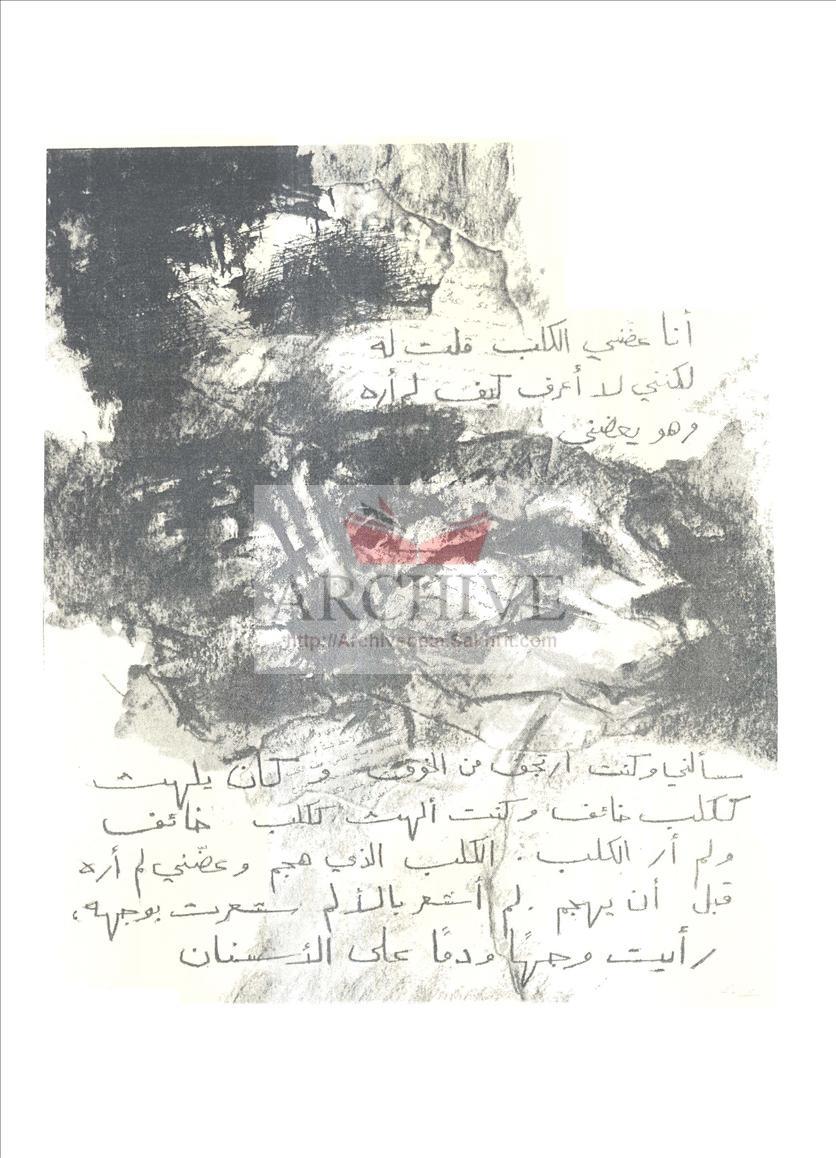 أنا عضني الكلب قلت له
لكنني لا أعرف كيف لم أره
وهو يعضني
ARCHIVE
http://Archivebeta.Sakhrit.com
سألني وكنت ارتجف من الخوف وكان يلهث
ككلب خائف وكنت ألهث ككلب خائف
ولم أر الكلب. الكلب الذي هجم وعضّني لم أره
قبل أن يهجم. لم أشعر بالألم شعرت بوجهه،
رأيت وجهًا ودمًا على الأسنان